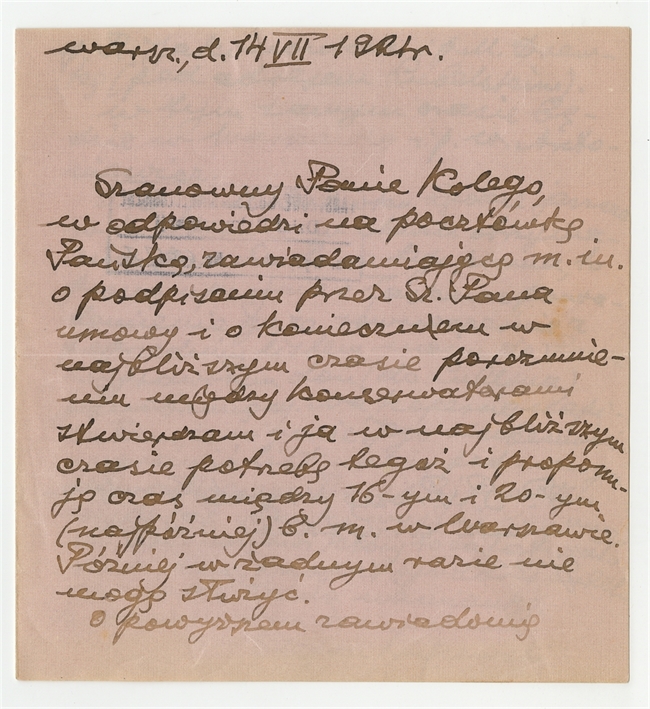 warsz., d. 14 VII 192 r.
Szanowny Panie Kolego,
w odpowiedzi na pocztówkę
Pańską, zawiadamiającą m. in.
o podpisaniu przez Sz. Pana
umowy i o koniecznem w
najbliższym czasie porozumie-
niu między konserwatorami
stwierdzam i ja w najbliższym
czasie potrzebę tegoż i proponu-
ję czas między 16-ym i 20-ym
(najpóźniej) b. m. w Warszawie.
Później w żadnym razie nie
mogę służyć.
O powyższem zawiadomię